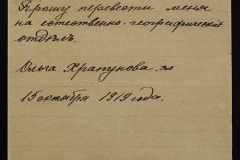 Прошу перевести меня
на естественно-географический
отдѣлъ.
Ольга Храпунова.
15 октября 1919 года.